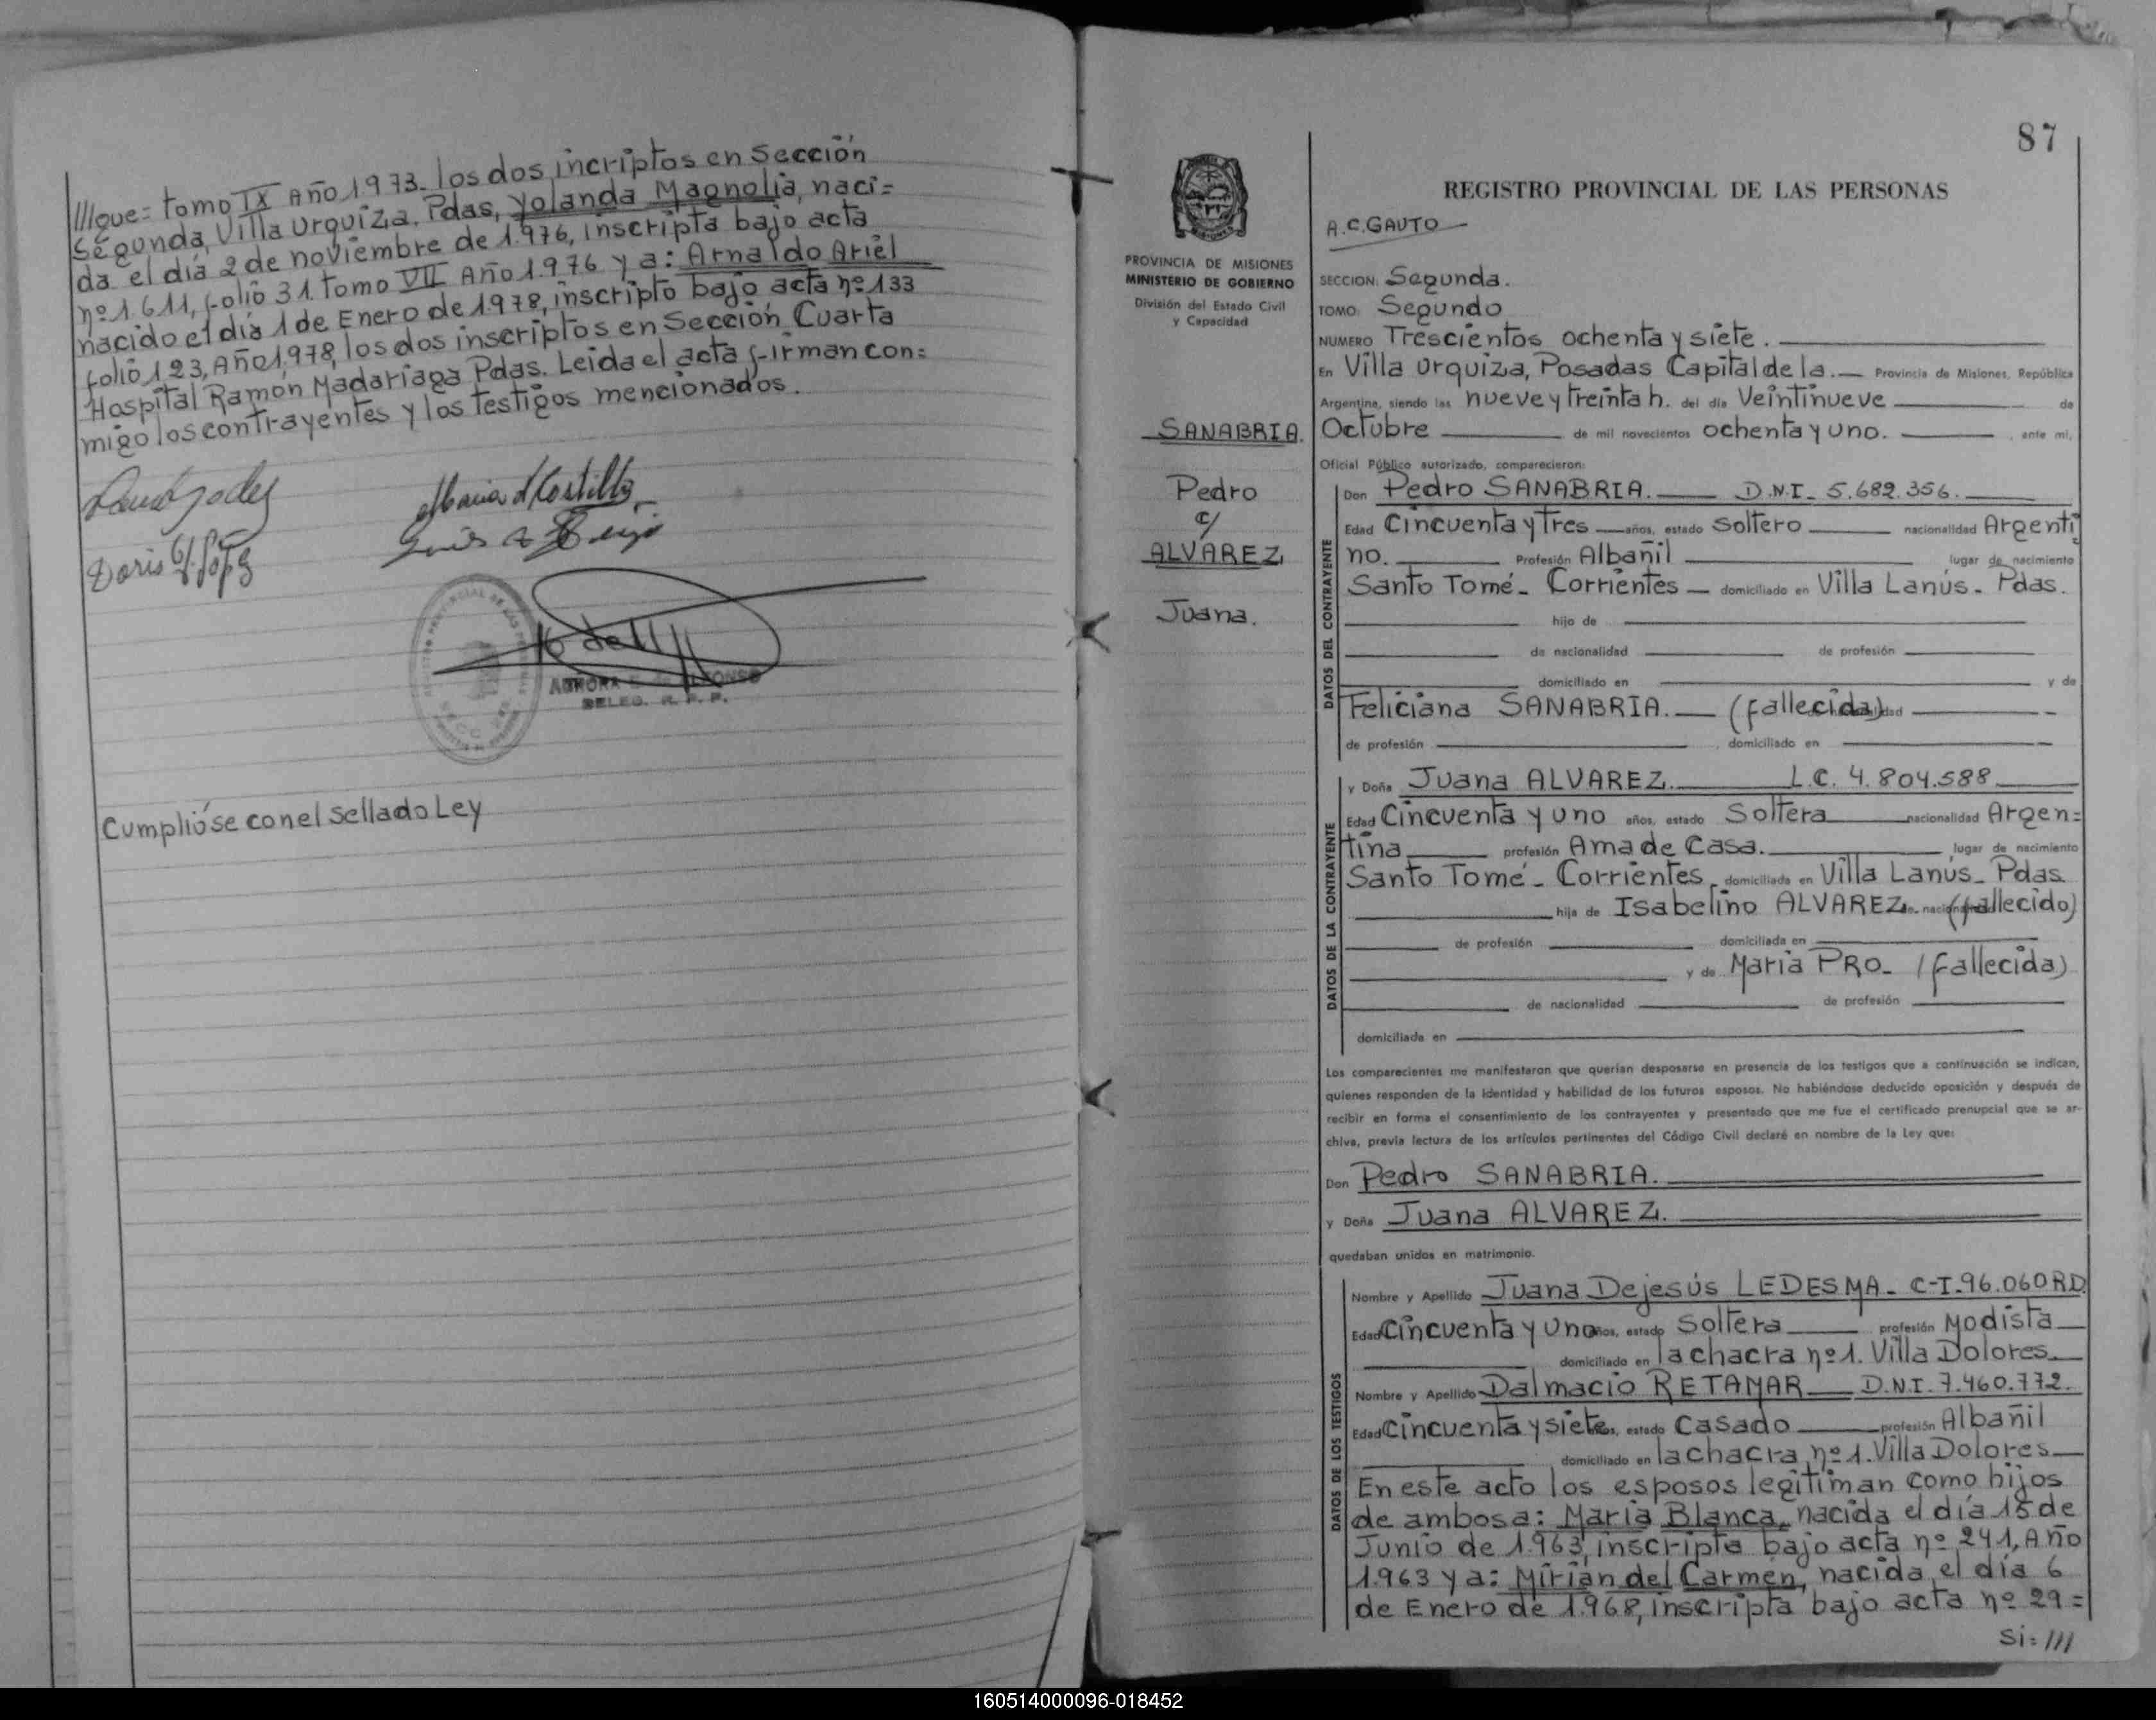 ///que= tomo IX Año 1973. los dos incriptos en Sección
Segunda, Villa Urquiza. Pdas, Yolanda Magnolia, naci=
da el día 2 de noviembre de 1.976, inscripta bajo acta
nº 1.611, folio 31. tomo VII Año 1.976 y a: Arnaldo Ariel
nacido el día 1 de Enero de 1.978, inscripto bajo acta nº 133
folio 123, Año 1.978, los dos inscriptos en Sección Cuarta
Hospital Ramón Madariaga Pdas. Leida el acta firman con=
migo los contrayentes y los testigos mencionados.
Maria d Costillo
Doris
DELEG. R. P. P.
Cumplióse con el Sellado Ley
87
REGISTRO PROVINCIAL DE LAS PERSONAS
A.C. GAUTO
PROVINCIA DE MISIONES
MINISTERIO DE GOBIERNO
División del Estado Civil
y Capacidad
SANABRIA.
Pedro
c/
ALVAREZ
Juana.
SECCION: Segunda.
TOMO: Segundo
NUMERO Trescientos ochenta y siete.
En Villa Urquiza, Posadas Capital de la. Provincia de Misiones, República
Argentina, siendo las nueve y treinta h. del día Veintinueve de
Octubre de mil novecientos ochenta y uno. , ante mi,
Oficial Público autorizado, comparecieron:
DATOS DEL CONTRAYENTE
Don Pedro SANABRIA. D.N.I. 5.682.356.
Edad Cincuenta y Tres años, estado Soltero nacionalidad Argenti
no. Profesión Albañil lugar de nacimiento
Santo Tomé - Corrientes domiciliado en Villa Lanús - Pdas.
hijo de
de nacionalidad de profesión
domiciliado en y de
Feliciana SANABRIA. (fallecida)
de profesión , domiciliado en
DATOS DE LA CONTRAYENTE
y Doña Juana ALVAREZ. L.C. 4.804.588
Edad Cincuenta y uno años, estado Soltera nacionalidad Argen=
tina profesión Ama de Casa. lugar de nacimiento
Santo Tomé - Corrientes, domiciliada en Villa Lanús - Pdas
hija de Isabelino ALVAREZ. (fallecido)
de profesión domiciliada en
y de Maria PRO - (fallecida)
de nacionalidad de profesión
domiciliada en
Los comparecientes me manifestaron que querían desposarse en presencia de los testigos que a continuación se indican,
quienes responden de la identidad y habilidad de los futuros esposos. No habiéndose deducido oposición y después de
recibir en forma el consentimiento de los contrayentes y presentado que me fue el certificado prenupcial que se ar-
chiva, previa lectura de los artículos pertinentes del Código Civil declaré en nombre de la Ley que:
Don Pedro SANABRIA.
y Doña Juana ALVAREZ.
quedaban unidos en matrimonio.
DATOS DE LOS TESTIGOS
Nombre y Apellido Juana Dejesús LEDESMA - C-I-96.060RD
Edad Cincuenta y Uno años, estado Soltera profesión Modista
domiciliado en la chacra nº 1. Villa Dolores.
Nombre y Apellido Dalmacio RETAMAR D.N.I. 7.460.772.
Edad Cincuenta y siete, estado Casado profesión Albañil
domiciliado en la chacra nº 1. Villa Dolores
En este acto los esposos legitiman como hijos
de ambosa: Maria Blanca, nacida el día 15 de
Junio de 1.963, inscripta bajo acta nº 241, Año
1.963 y a: Mirian del Carmen, nacida el día 6
de Enero de 1.968, inscripta bajo acta nº 29=
Si= ///
160514000096-018452